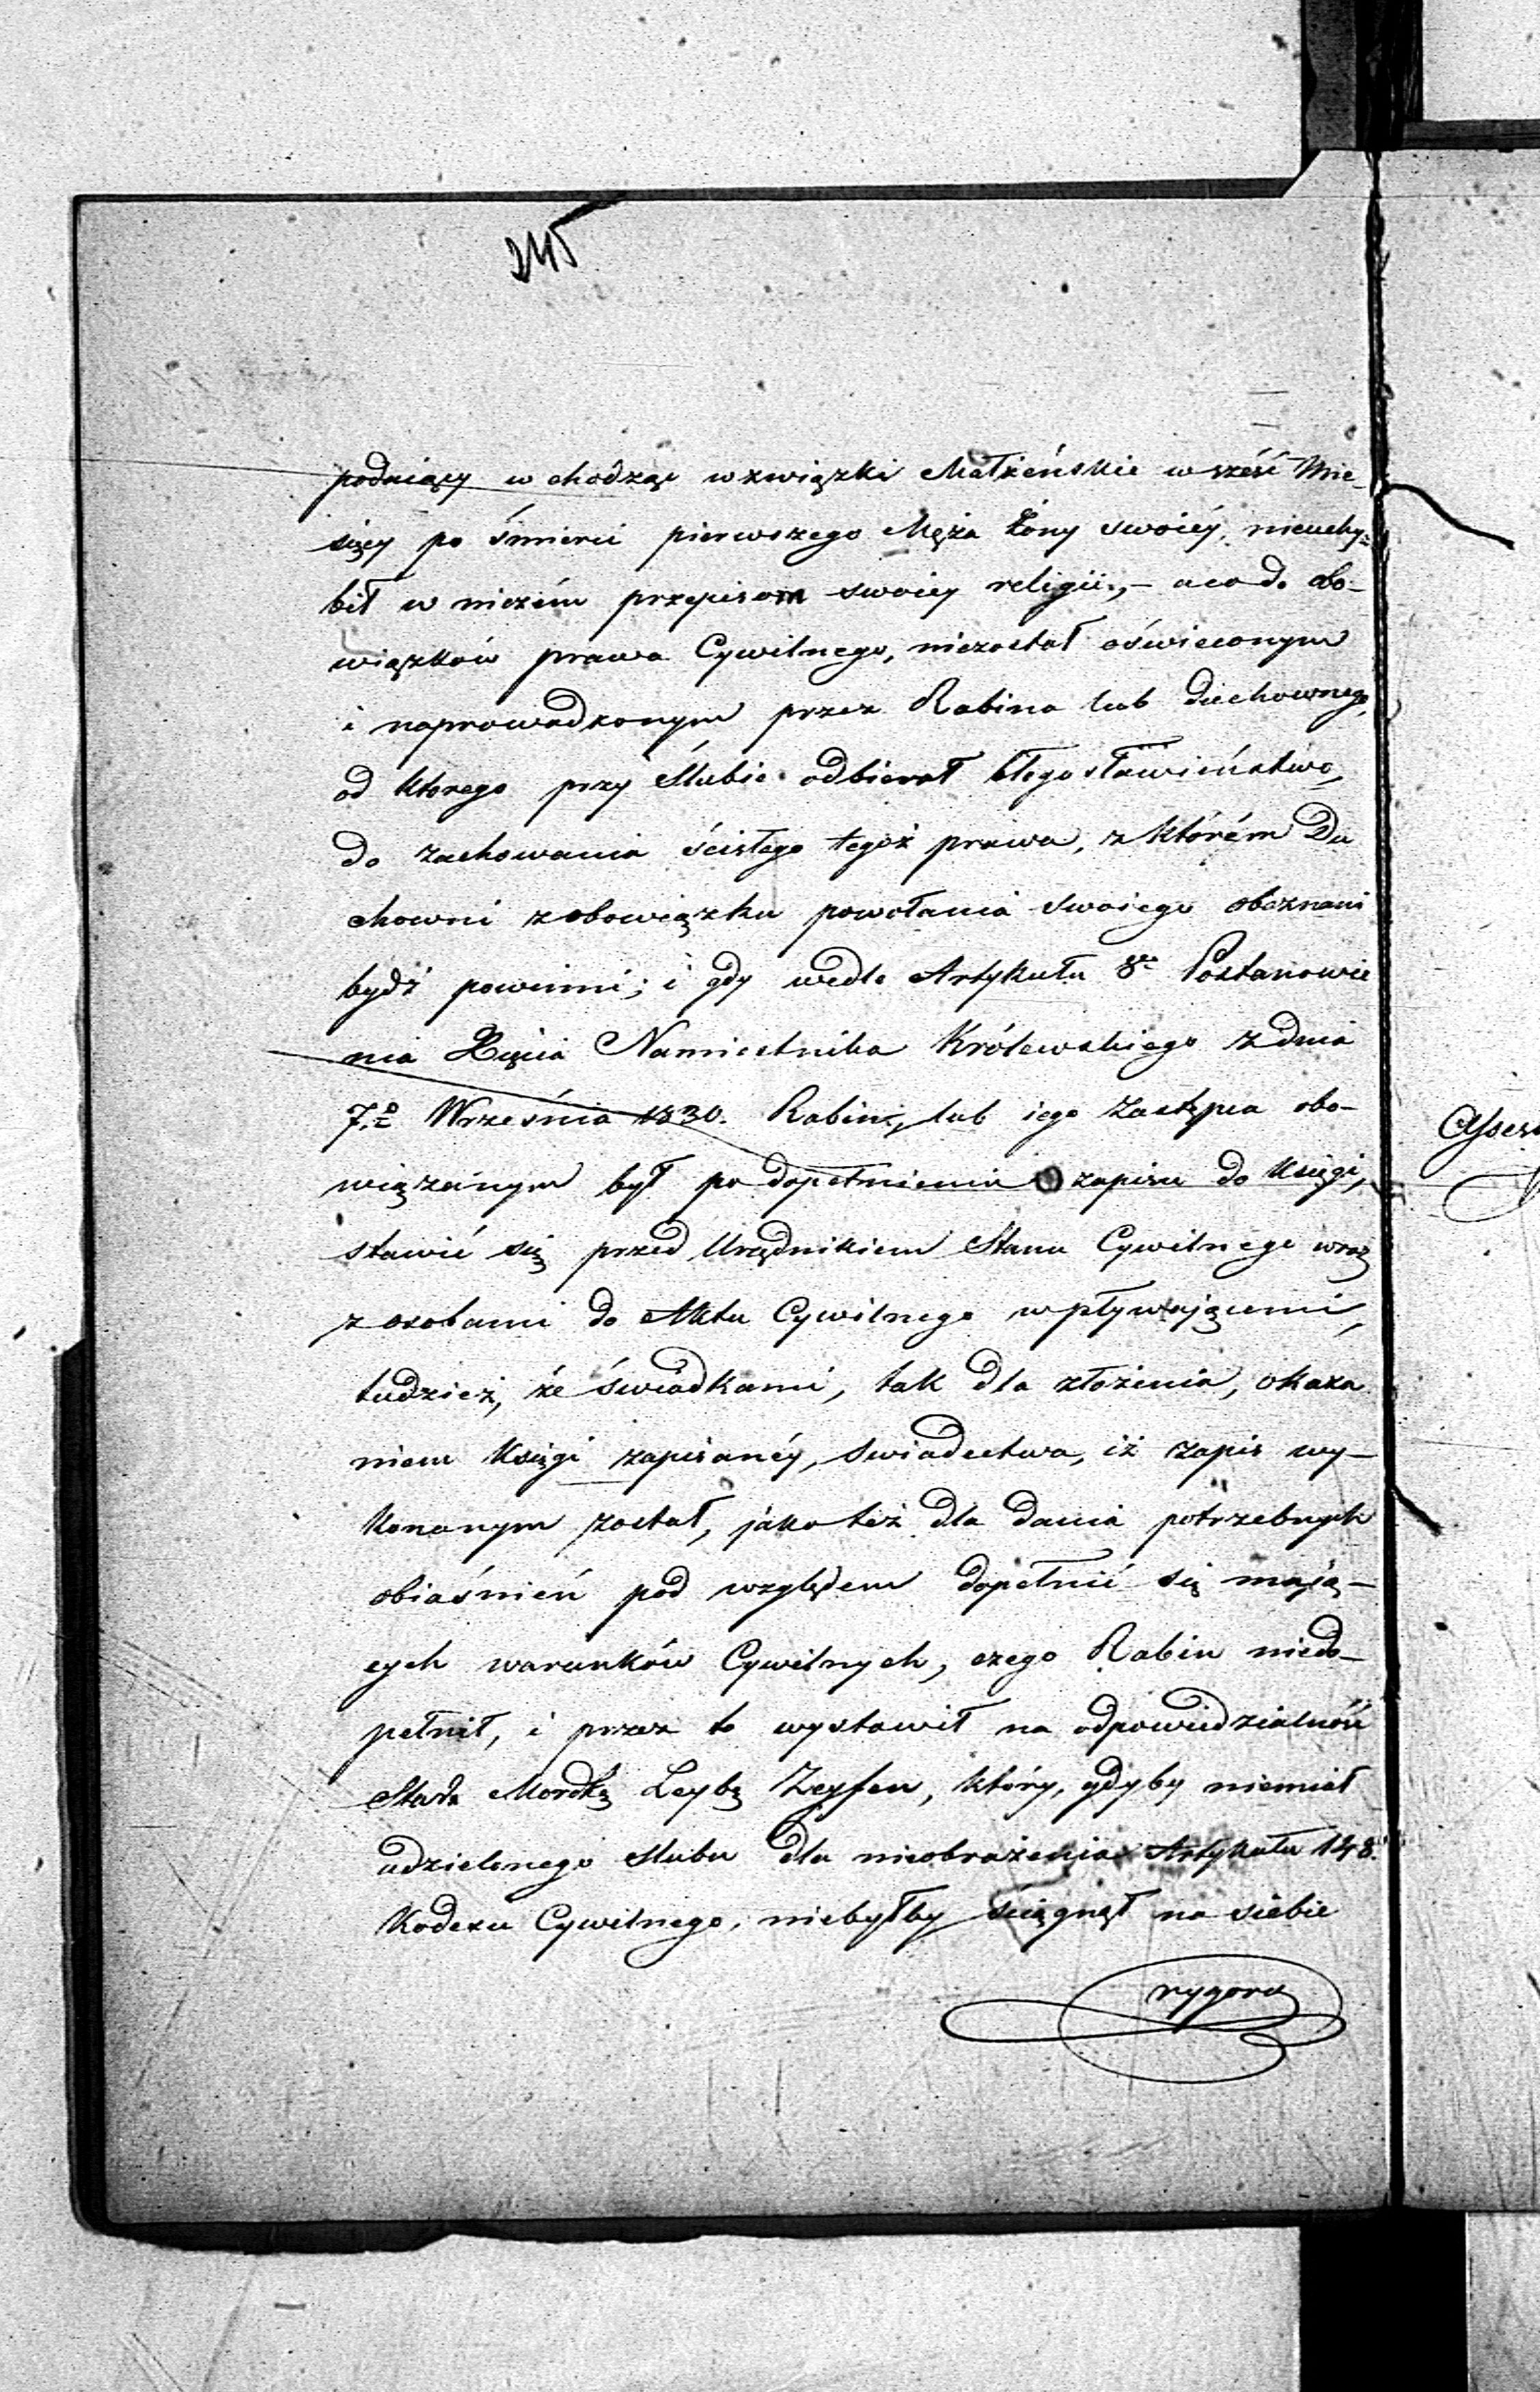 245
podaiący wchodząc w związki Małżeńskie w sześć Mie-
sięcy po śmierci pierwszego Męża Żony swoiéy, nieuchy-
bił w niczém przepisom swoiéy religii, – a co do obo-
wiązków prawa Cywilnego, niezostał oświeconym
i naprowadzonym przez Rabina lub duchownego,
od ktorego przy Slubie odbierał błogosławieństwo,
do zachowania ścisłego tegoż prawa, z którém Du
chowni z obowiązku powołania swoiego obeznani
bydź powinni; i gdy wedle Artykułu 8go Postanowie
nia Xięcia Namiestnika Królewskiego z dnia
7.o Września 1830. Rabin, lub iego Zastępca obo-
wiązanym był po dopełnieniu zapisu do Księgi,
stawić się przed Urzędnikiem Stanu Cywilnego wraz
z osobami do Aktu Cywilnego wpływaiącemi,
tudzież, że świadkami, tak dla złożenia, okaza
niem Księgi zapisanéy, swiadectwa, iż zapis wy-
konanym został, jako też dla dania potrzebnych
obiaśnień pod względem dopełnić się mają-
cych warunków Cywilnych, czego Rabin niedo-
pełnił, i przez to wystawił na odpowiedzialność
Stark Mordkę Leybę Zeyfen, który, gdyby niemiał
udzielonego slubu dla nieobrażenia Artykułu 148.
Kodexu Cywilnego, niebyłby ściągnął na siebie
rygoru
Assess